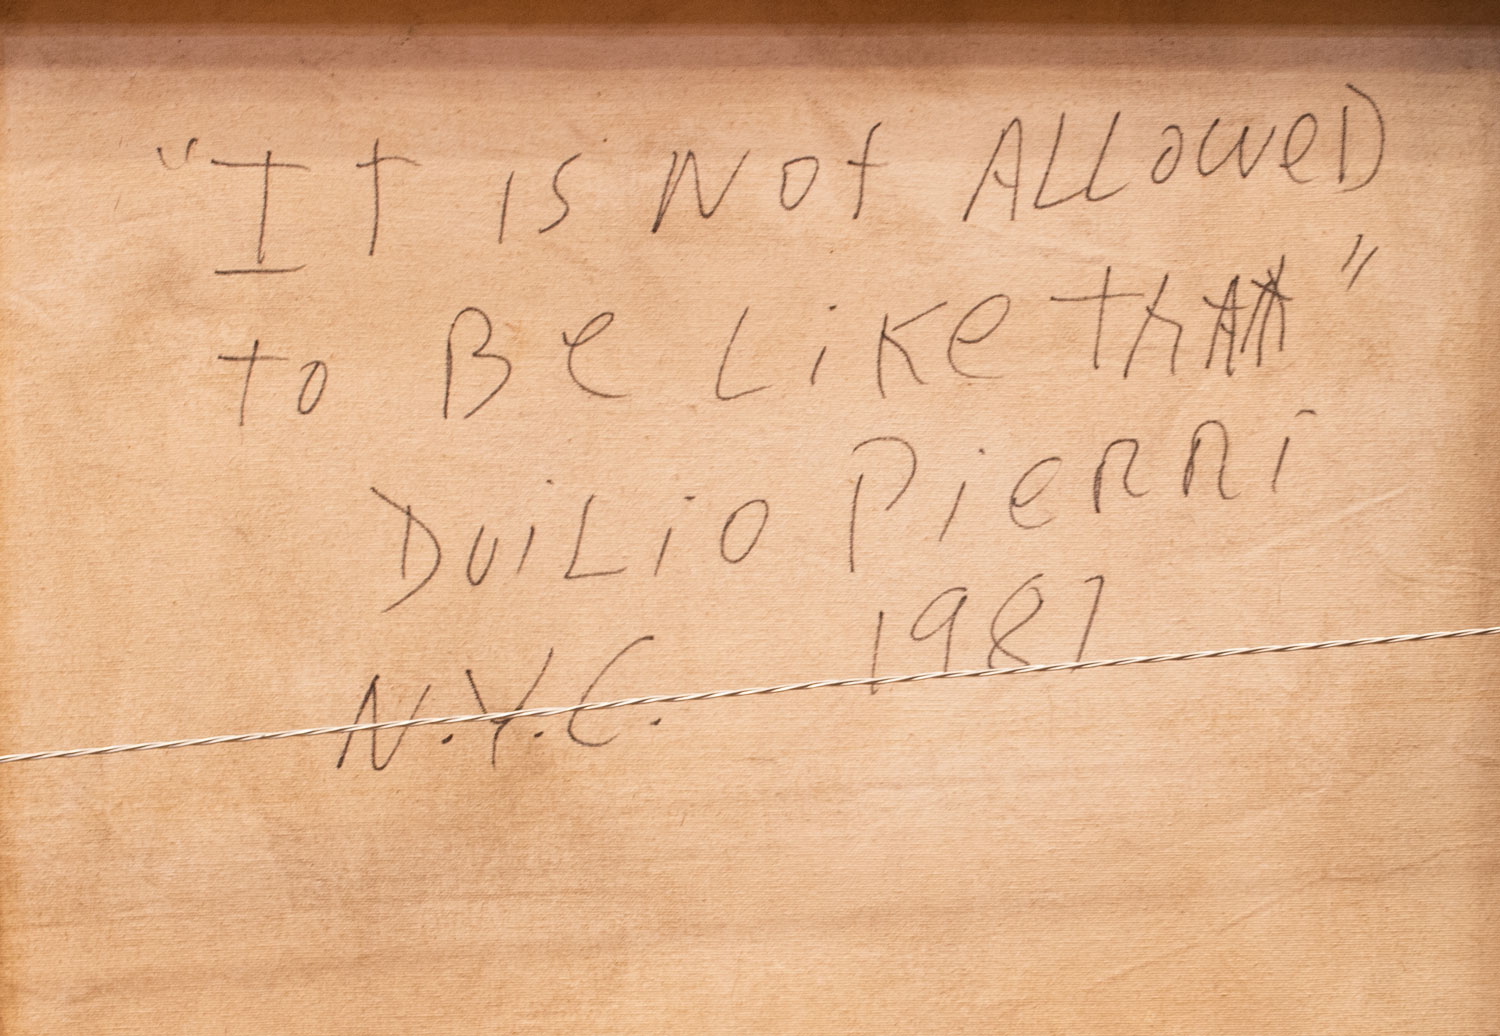 "IT is NOt ALLoweD
to Be Like thAt"
DuiLio PieRRi
1987
N.Y.C.